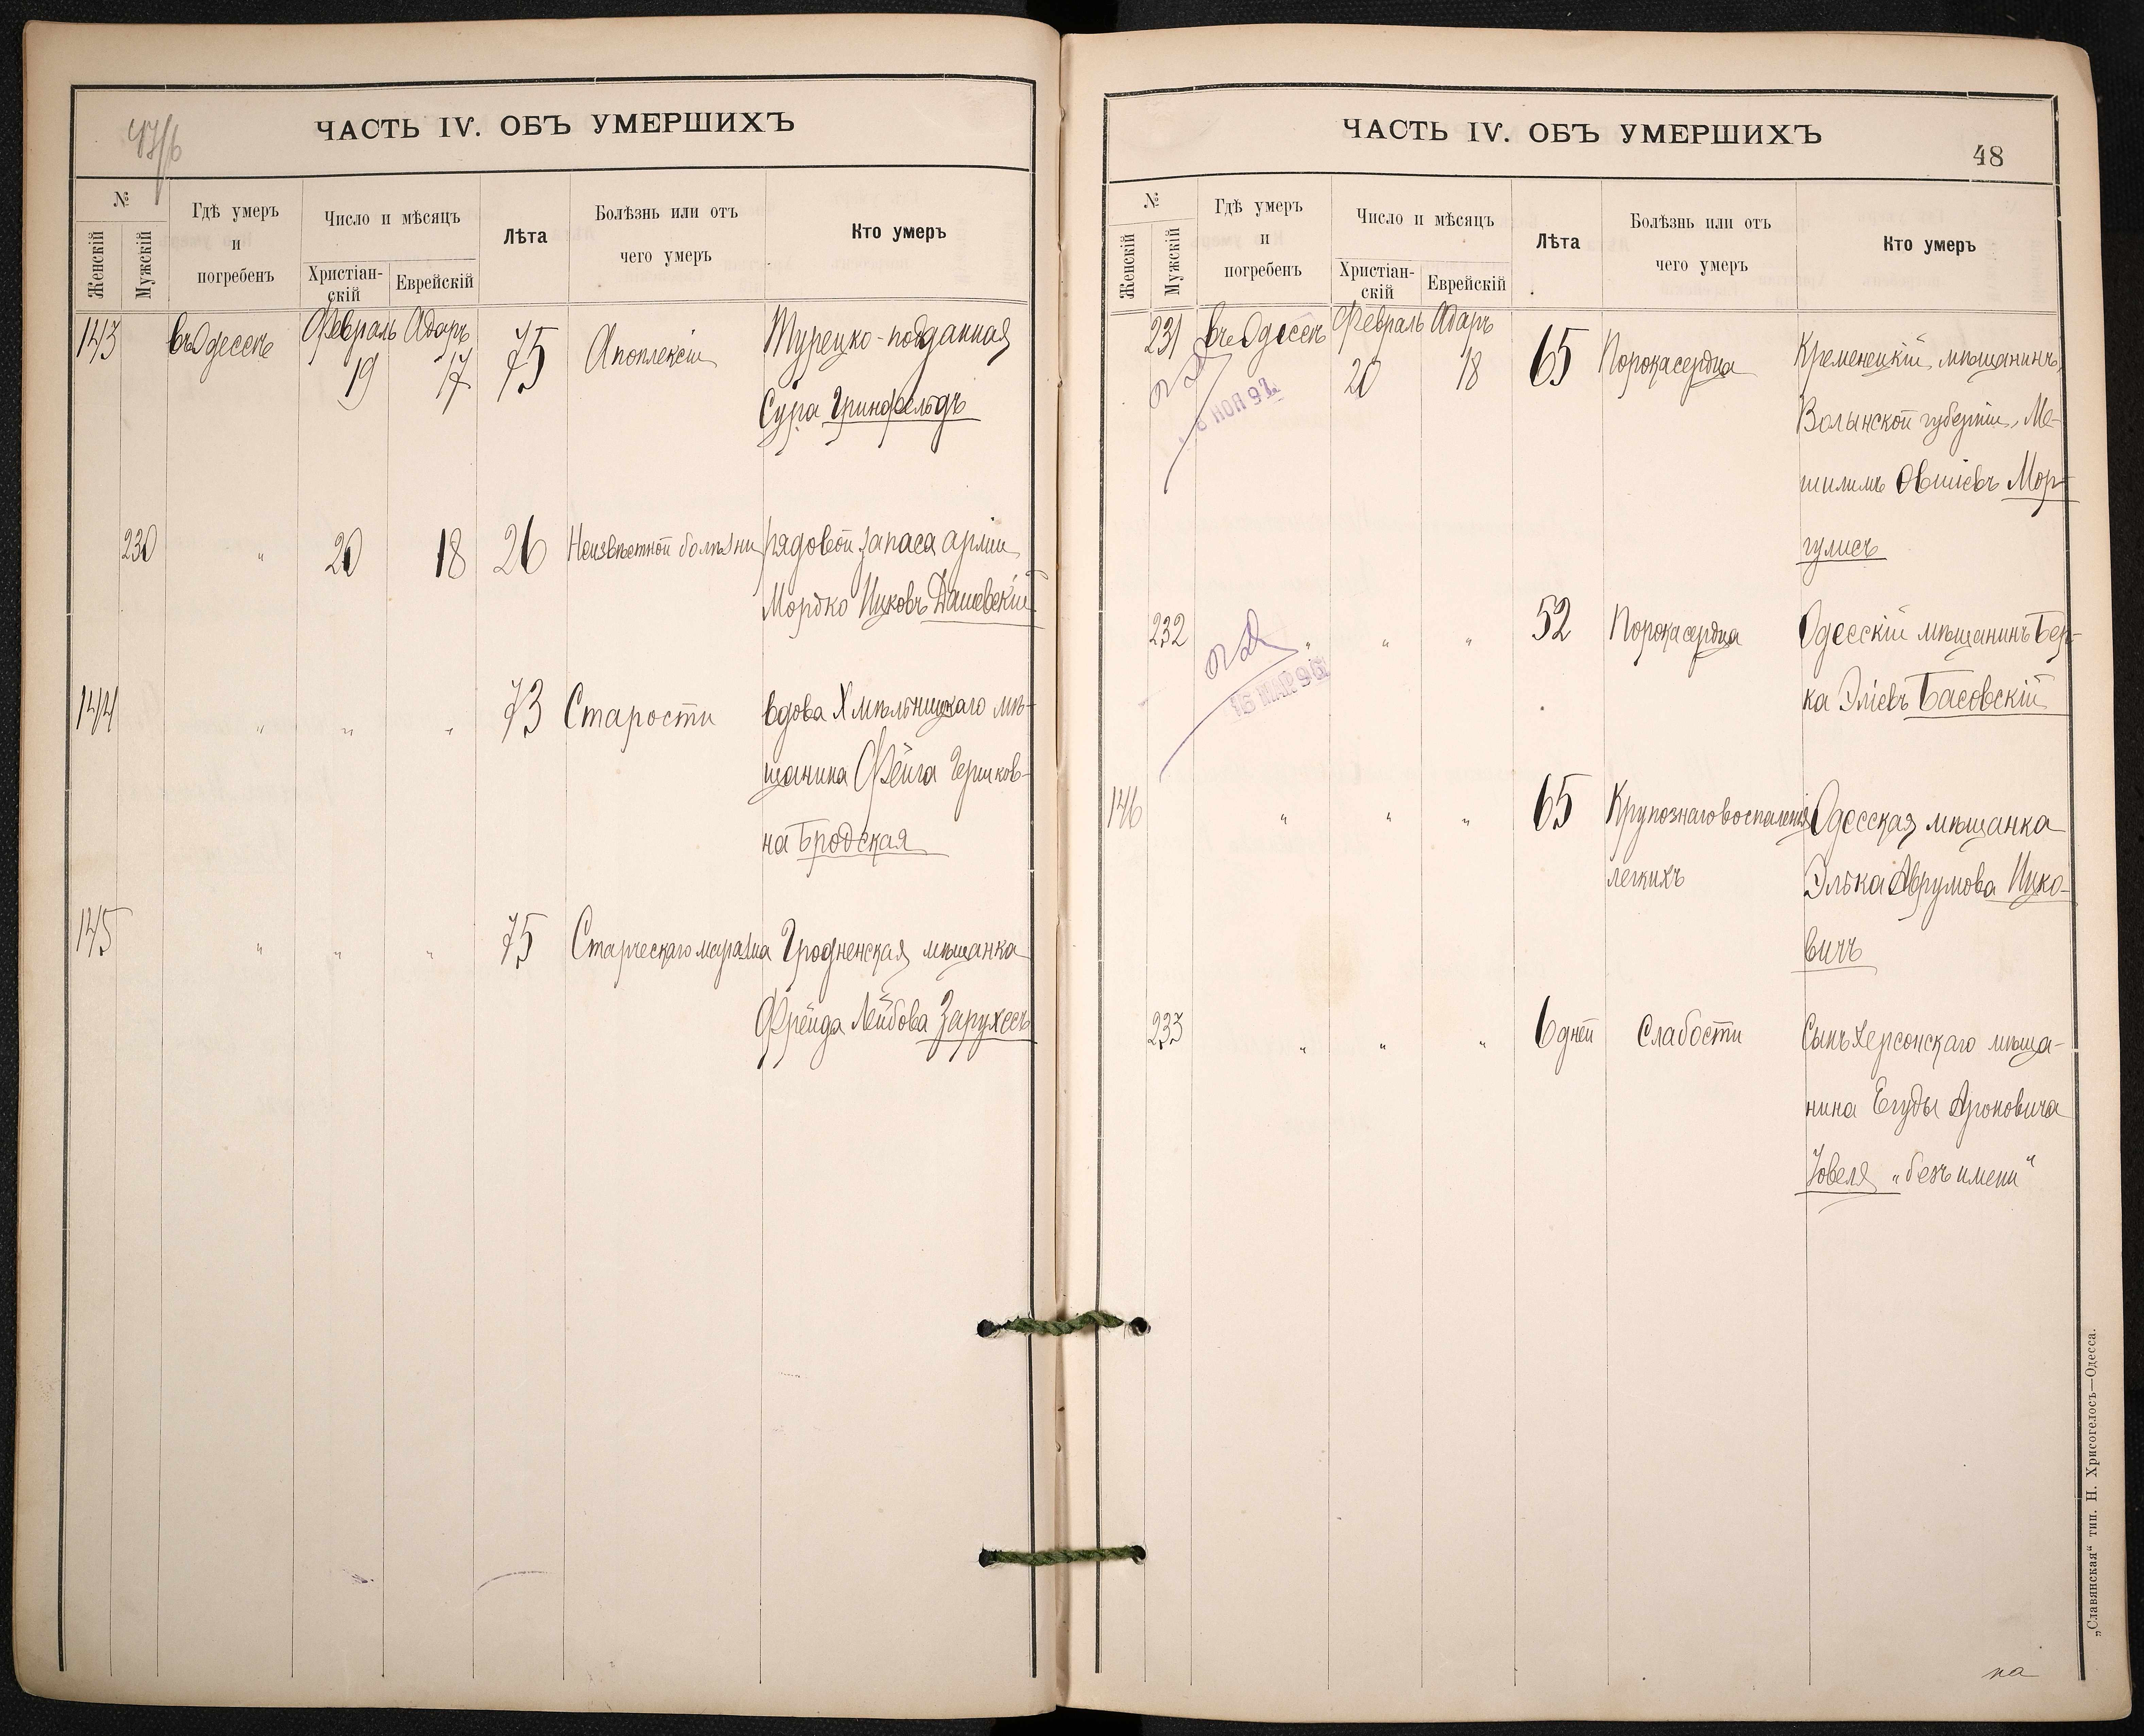 47/6
ЧАСТЬ IV. ОБЪ УМЕРШИХЪ
№
Женскій
Мужскій
Гдѣ умеръ
и
погребенъ
Число и мѣсяцъ
Христіан-
скій
Еврейскій
Лѣта
Болѣзнь или отъ
чего умеръ
Кто умеръ
143 въ Одессѣ Февраль 19 Адаръ 17 75 Апоплексіи Турецко-подданная
Сура Гринфельдъ
230 " 20 18 26 Неизвѣстной болѣзни рядовой запаса арміи
Мордко Ицковъ Дашевскій
144 " " " 73 Старости вдова Хмѣльницкаго мѣ-
щанина Фейга Гершков-
на Бродская
145 " " " 75 Старческаго маразма Гродненская мѣщанка
Фрейда Лейбова Зарухесъ
ЧАСТЬ IV. ОБЪ УМЕРШИХЪ
48
№
Женскій
Мужскій
Гдѣ умеръ
и
погребенъ
Число и мѣсяцъ
Христіан-
скій
Еврейскій
Лѣта
Болѣзнь или отъ
чего умеръ
Кто умеръ
231 въ Одессѣ Февраль 20 Адаръ 18 65 Порока сердца Кременецкій мѣщанинъ,
Волынской губерніи, Ме-
шилимъ Овшіевъ Мор-
гулисъ
232 " " " 52 Порока сердца Одесскій мѣщанинъ Бер-
ка Эліевъ Басовскій
16 МАР 96
146 " " " 65 Крупознаго воспаленія Одесская мѣщанка
легкихъ Элька Аврумова Ицко-
вичъ
233 " " " 6 дней Слабости Сынъ Херсонскаго мѣща-
нина Егуды Ароновича
Ювеля „безъ имени“
„Славянская“ тип. Н. Хрисогелосъ—Одесса.
на